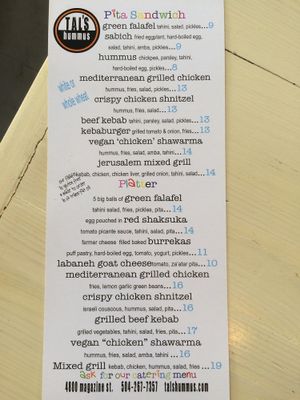 TAL'S
hummus
Pita Sandwich
green falafel tahini, salad, pickles...9
sabich fried eggplant, hard-boiled egg,
salad, tahini, amba, pickles...9
hummus chickpea, parsley, tahini,
hard-boiled egg, pickles...8
mediterranean grilled chicken
hummus, fries, salad, pickles...13
white or
whole wheat
crispy chicken shnitzel
hummus, fries, salad, pickles...13
beef kebab tahini, parsley, salad, pickles...13
kebaburger grilled tomato & onion, fries...13
vegan 'chicken' shawarma
hummus, fries, salad, amba, tahini...14
jerusalem mixed grill
kebab, chicken, chicken liver, grilled onion, tahini, salad...14
Platter
5 big balls of green falafel
tahini salad, fries, pickles, pita...14
egg pouched in red shaksuka
tomato picante sauce, tahini, salad, pita...14
farmer cheese filled baked burrekas
puff pastry, hard-boiled egg, tomato, yogurt, pickles...11
labaneh goat cheese tomato, za'atar pita...10
mediterranean grilled chicken
fries, lemon garlic green beans...16
crispy chicken shnitzel
israel couscous, hummus, salad, pita...16
grilled beef kebab
grilled vegetables, tahini, salad, fries, pita...17
vegan "chicken" shawarma
hummus, fries, salad, amba, tahini...16
Mixed grill kebab, chicken, hummus, salad, fries, pita...19
ask for our catering menu
4800 magazine st. 504-267-7357 talshummus.com